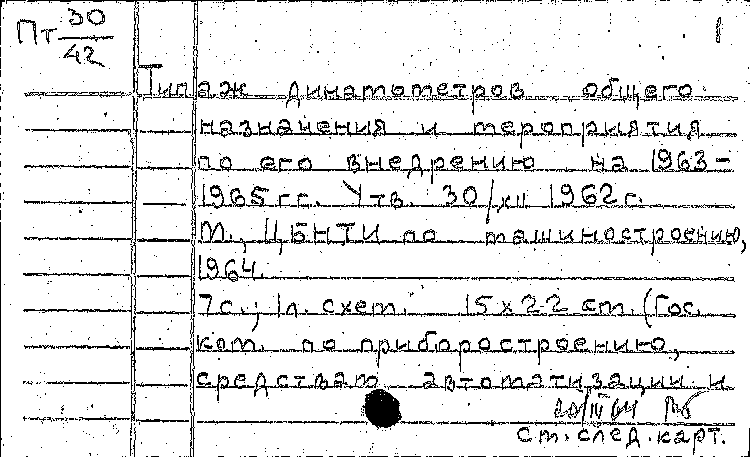 Пт 30/42
1
Типаж динамометров общего
назначения и мероприятия
по его внедрению на 1963-
1965 гг. Утв. 30/XII 1962 г.
М., ЦБНТИ по машиностроению,
1964.
7 с.; 1 л. схем. 15 x 22 см. (Гос.
ком. по приборостроению,
средствам автоматизации и
20/III 64
См. след. карт.